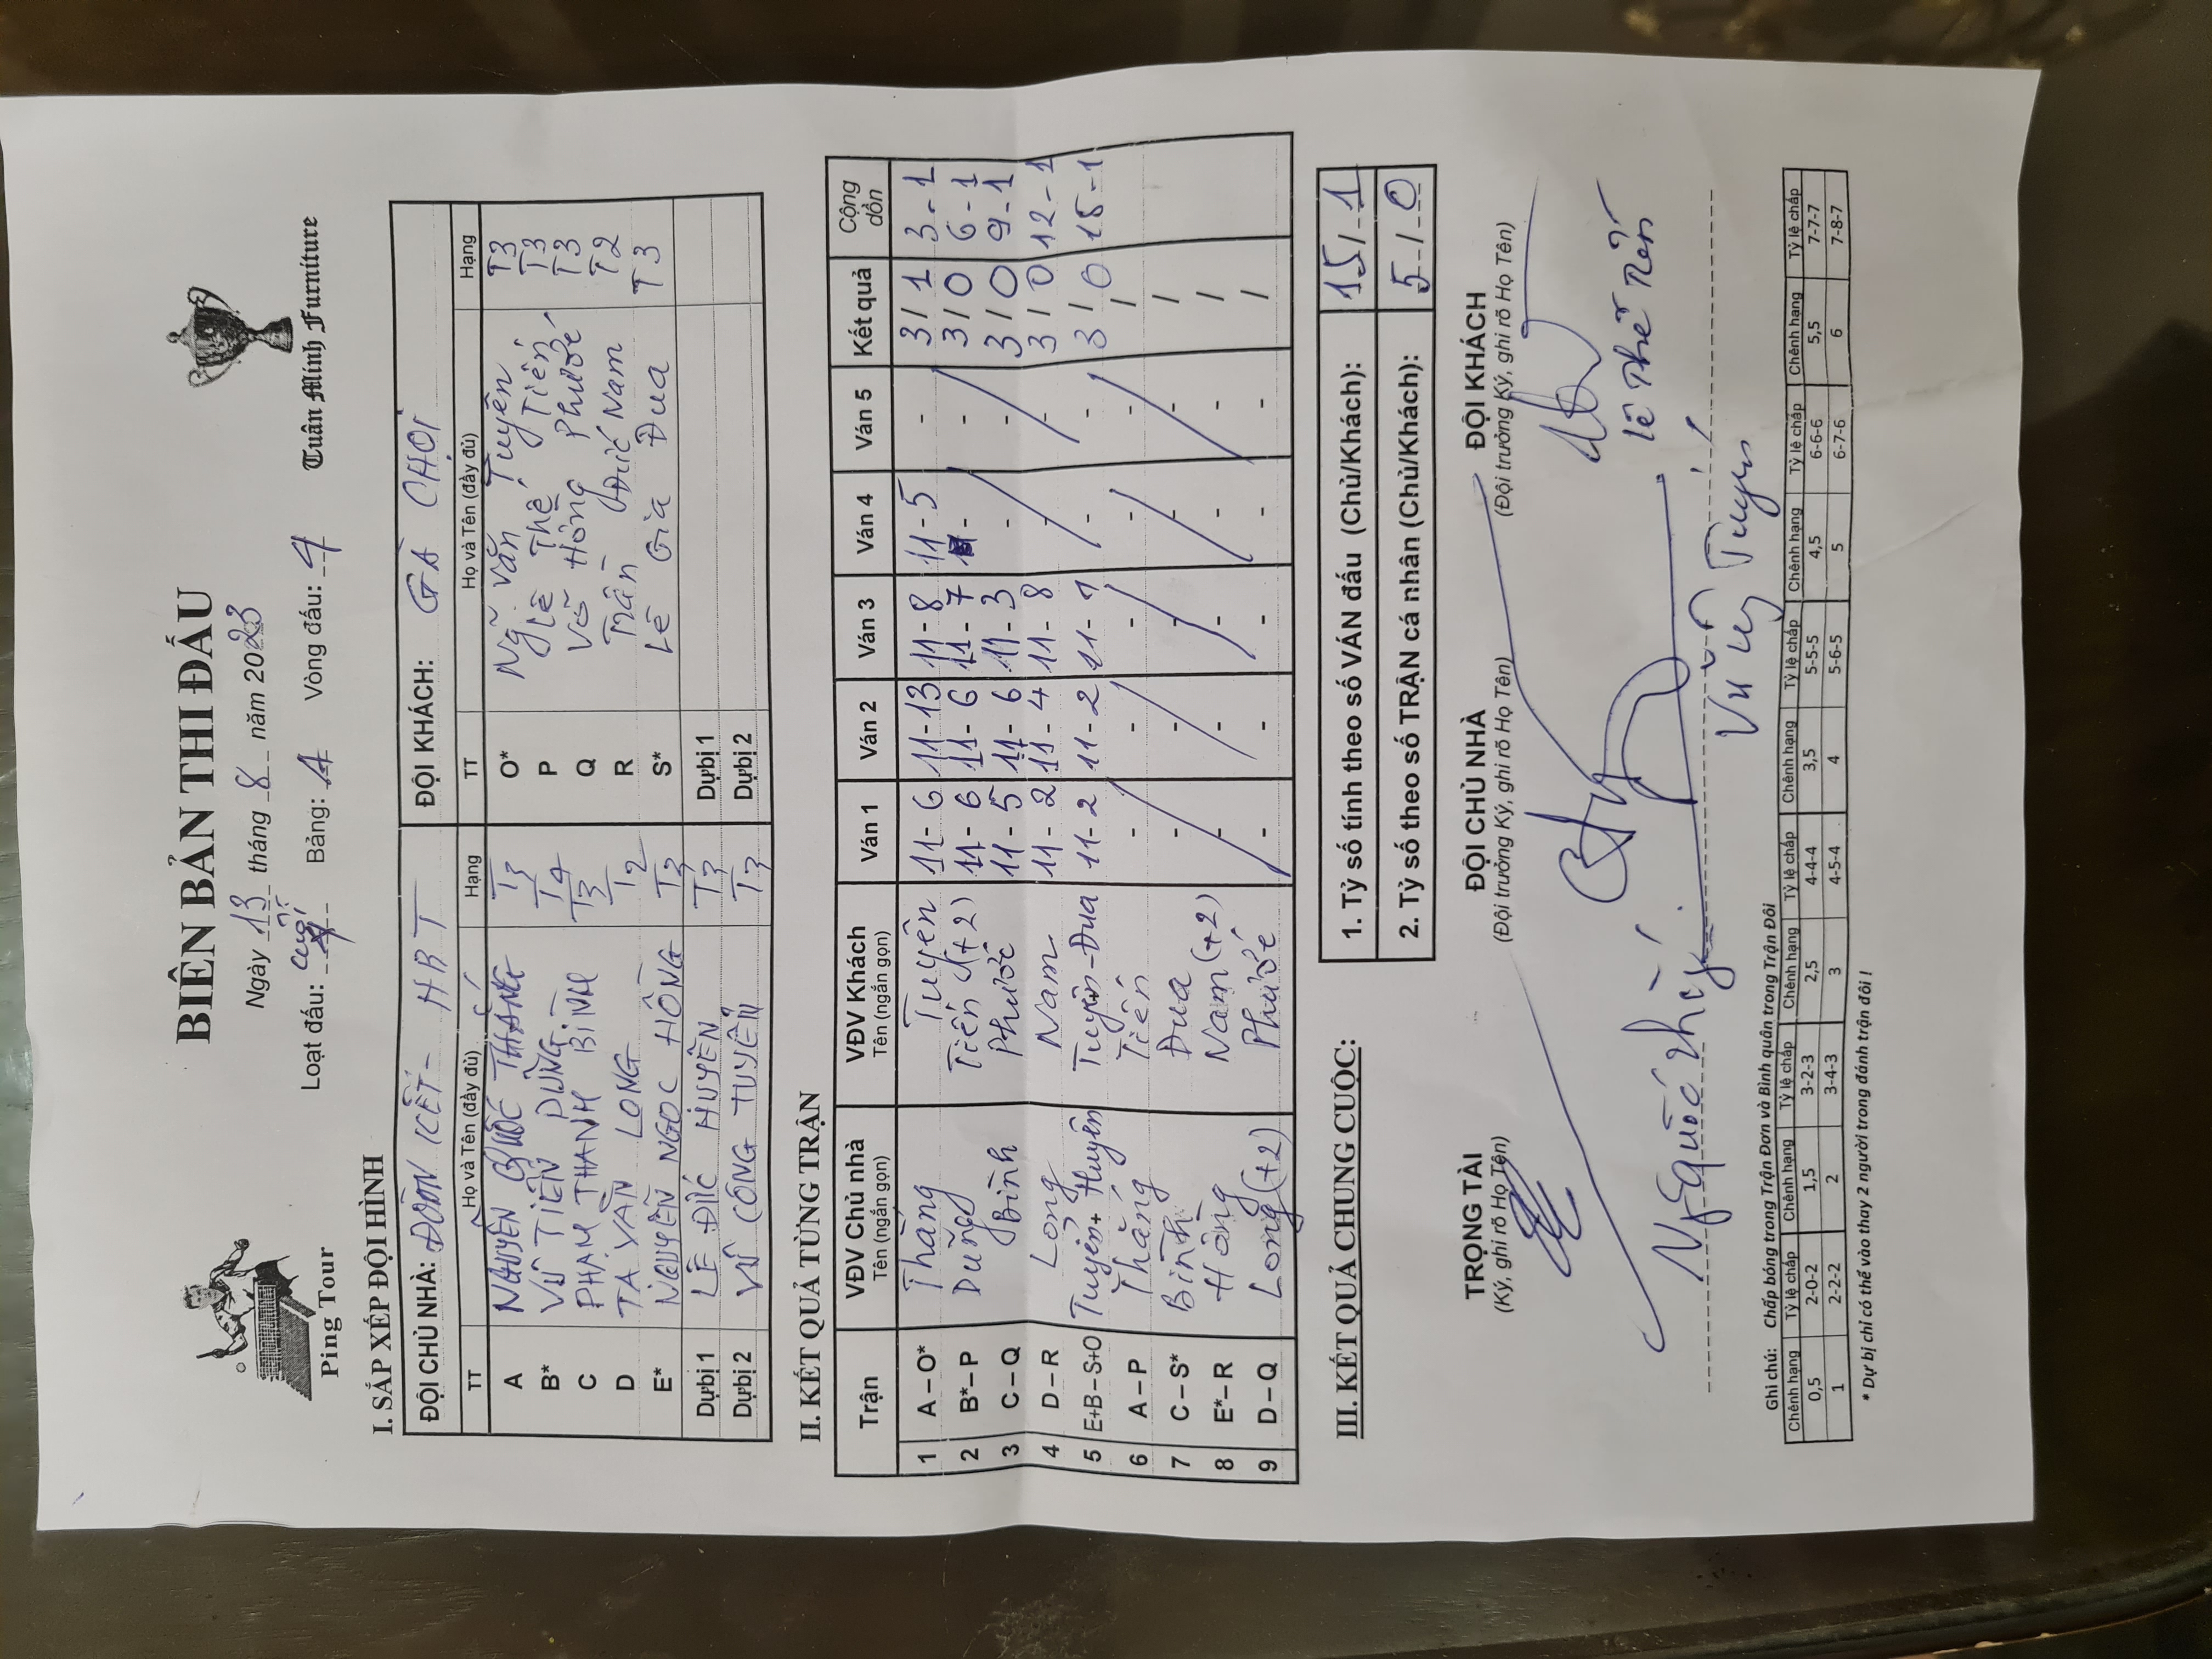 BIÊN BẢN THI ĐẤU
Ping Tour
Ngày 13 tháng 8 năm 2023
Tuân Minh Furniture
Loạt đấu: cuối Bảng: A Vòng đấu: 4
I. SẮP XẾP ĐỘI HÌNH
ĐỘI CHỦ NHÀ: ĐOÀN KẾT - HBT ĐỘI KHÁCH: GÀ CHỌI
TT Họ và Tên (đầy đủ) Hạng TT Họ và Tên (đầy đủ) Hạng
A NGUYỄN QUỐC THẮNG T3 O* Ng Văn Tuyên T3
B* VŨ TIẾN DŨNG T4 P Lê Thế Tiến T3
C PHẠM THANH BÌNH T3 Q Võ Hồng Phước T3
D TẠ VĂN LONG T2 R Trần Đức Nam T2
E* NGUYỄN NGỌC HỒNG T3 S* Lê Gia Đua T3
Dự bị 1 LÊ ĐỨC HUYÊN T3 Dự bị 1
Dự bị 2 VŨ CÔNG TUYỂN T3 Dự bị 2
II. KẾT QUẢ TỪNG TRẬN
Trận VĐV Chủ nhà VĐV Khách Ván 1 Ván 2 Ván 3 Ván 4 Ván 5 Kết quả Cộng dồn
Tên (ngắn gọn) Tên (ngắn gọn)
1 A – O* Thắng Tuyên 11-6 11-13 11-8 11-5 - 3/1 3-1
2 B* – P Dũng Tiến (+2) 11-6 11-6 11-7 - - 3/0 6-1
3 C – Q Bình Phước 11-5 11-6 11-3 - - 3/0 9-1
4 D – R Long Nam 11-2 11-4 11-8 - - 3/0 12-1
5 E+B – S+O Tuyển+Huyên Tuyên-Đua 11-2 11-2 11-7 - - 3/0 15-1
6 A – P Thắng Tiến - - - - - /
7 C – S* Bình Đua - - - - - /
8 E* – R Hồng Nam (+2) - - - - - /
9 D – Q Long (+2) Phước - - - - - /
III. KẾT QUẢ CHUNG CUỘC:
1. Tỷ số tính theo số VÁN đấu (Chủ/Khách): 15/1
2. Tỷ số theo số TRẬN cá nhân (Chủ/Khách): 5/0
TRỌNG TÀI ĐỘI CHỦ NHÀ ĐỘI KHÁCH
(Ký, ghi rõ Họ Tên) (Đội trưởng Ký, ghi rõ Họ Tên) (Đội trưởng Ký, ghi rõ Họ Tên)
Lê Thế Tiến
Ng Quốc
Tuyển
Ghi chú: Chấp bóng trong Trận Đơn và Bình quân trong Trận Đôi
Chênh hạng Tỷ lệ chấp Chênh hạng Tỷ lệ chấp Chênh hạng Tỷ lệ chấp Chênh hạng Tỷ lệ chấp Chênh hạng Tỷ lệ chấp Chênh hạng Tỷ lệ chấp
0,5 2-0-2 1,5 3-2-3 2,5 4-4-4 3,5 5-5-5 4,5 6-6-6 5,5 7-7-7
1 2-2-2 2 3-4-3 3 4-5-4 4 5-6-5 5 6-7-6 6 7-8-7
* Dự bị chỉ có thể vào thay 2 người trong đánh trận đôi !